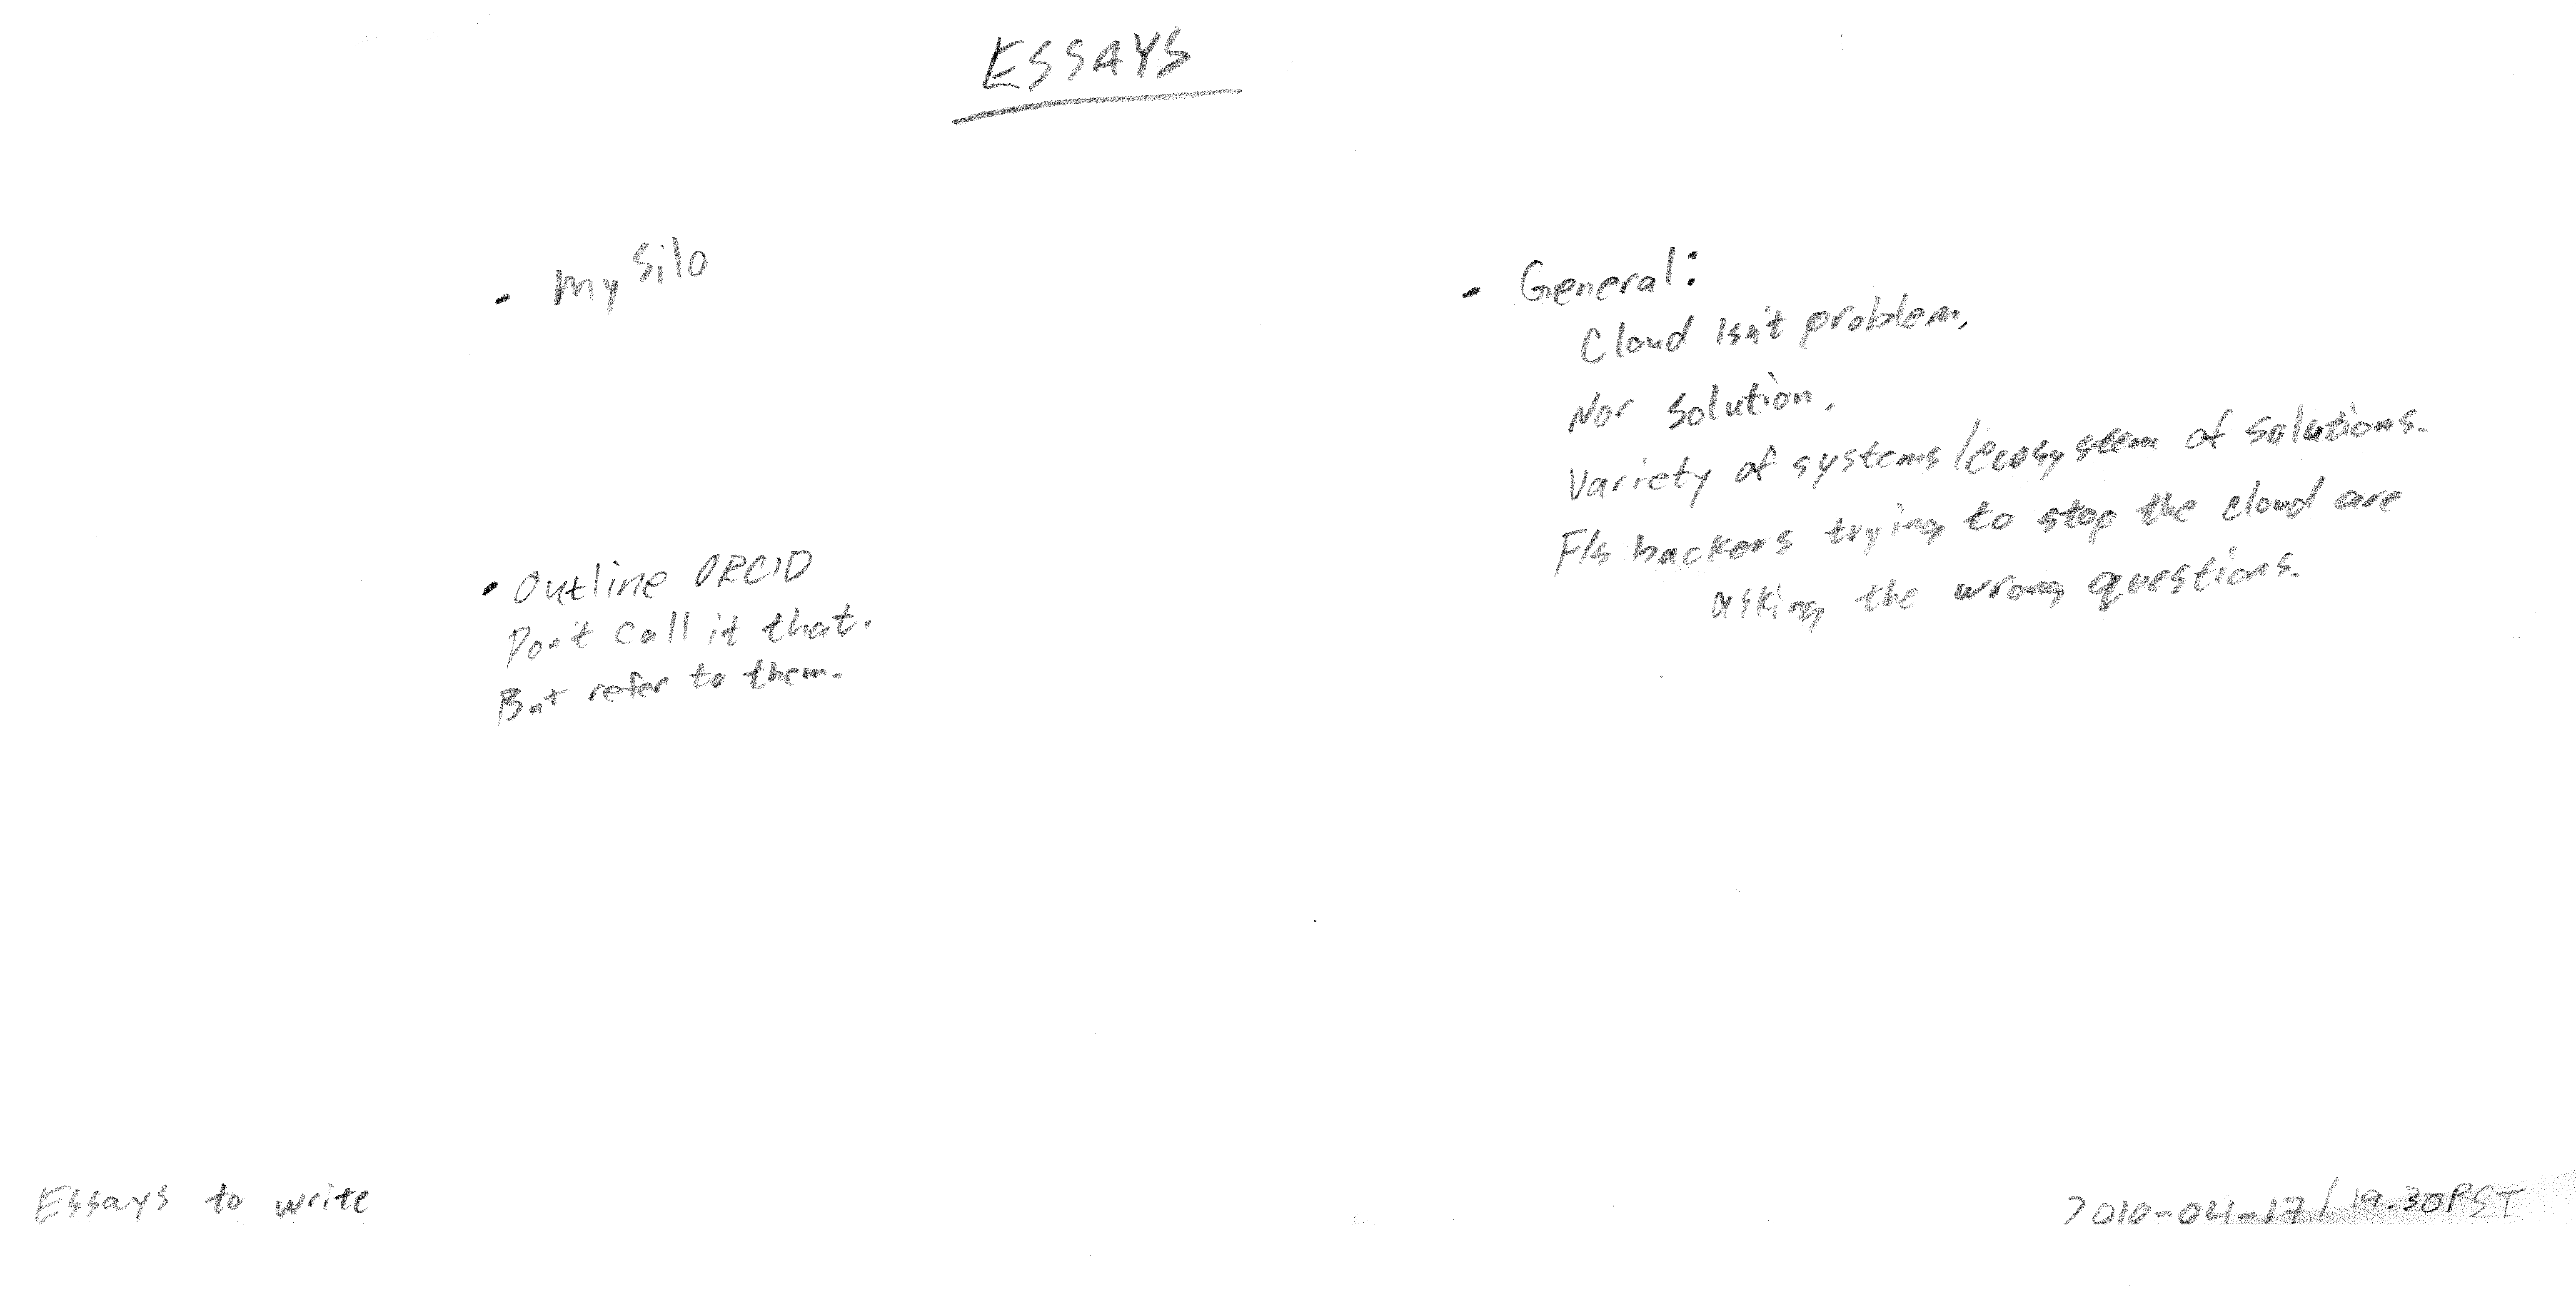 ESSAYS
• My Silo
• Outline ORCID
Don't call it that.
But refer to them.
• General:
Cloud isn't problem,
Nor solution.
Variety of systems/ecosystem of solutions.
F/s backers trying to stop the cloud are
asking the wrong questions.
Essays to write
2010-04-17/19.30PST